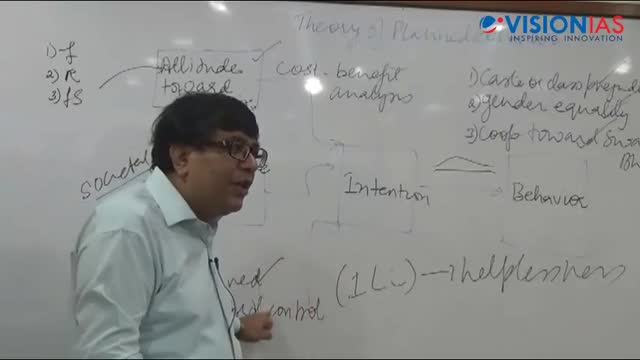 VISIONIAS
INSPIRING INNOVATION
Theory of Planned
1) f
2) R
3) fS
Attitudes
toward
Cost-benefit
analysis
1) Caste or class prejudi
2) gender equality
3) Coop toward Swa
Bh
Societal
Intention
Behavior
ned
control
helplessness